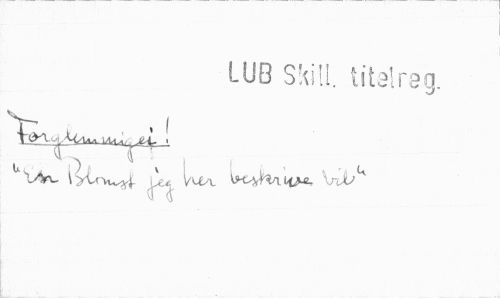 LUB Skill. titelreg.
Forglemmigei!
"En Blomst jeg her beskrive vil"